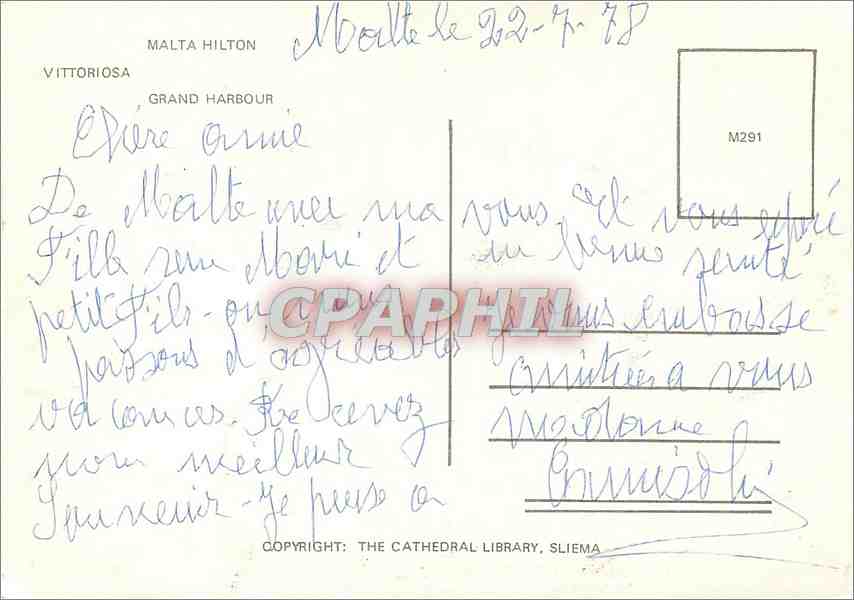 MALTA HILTON
VITTORIOSA
GRAND HARBOUR
Malte le 22-7-78
M291
Chère annie
De Malte avec ma
fille son Mari et
petit fils - on nous
passons d'agreables
vacances. Recevez
mon meilleur
Souvenir - Je pense a
vous et vous espère
en bonne santé
je vous embrasse
amitiés a vous
CPAPHIL
COPYRIGHT: THE CATHEDRAL LIBRARY, SLIEMA